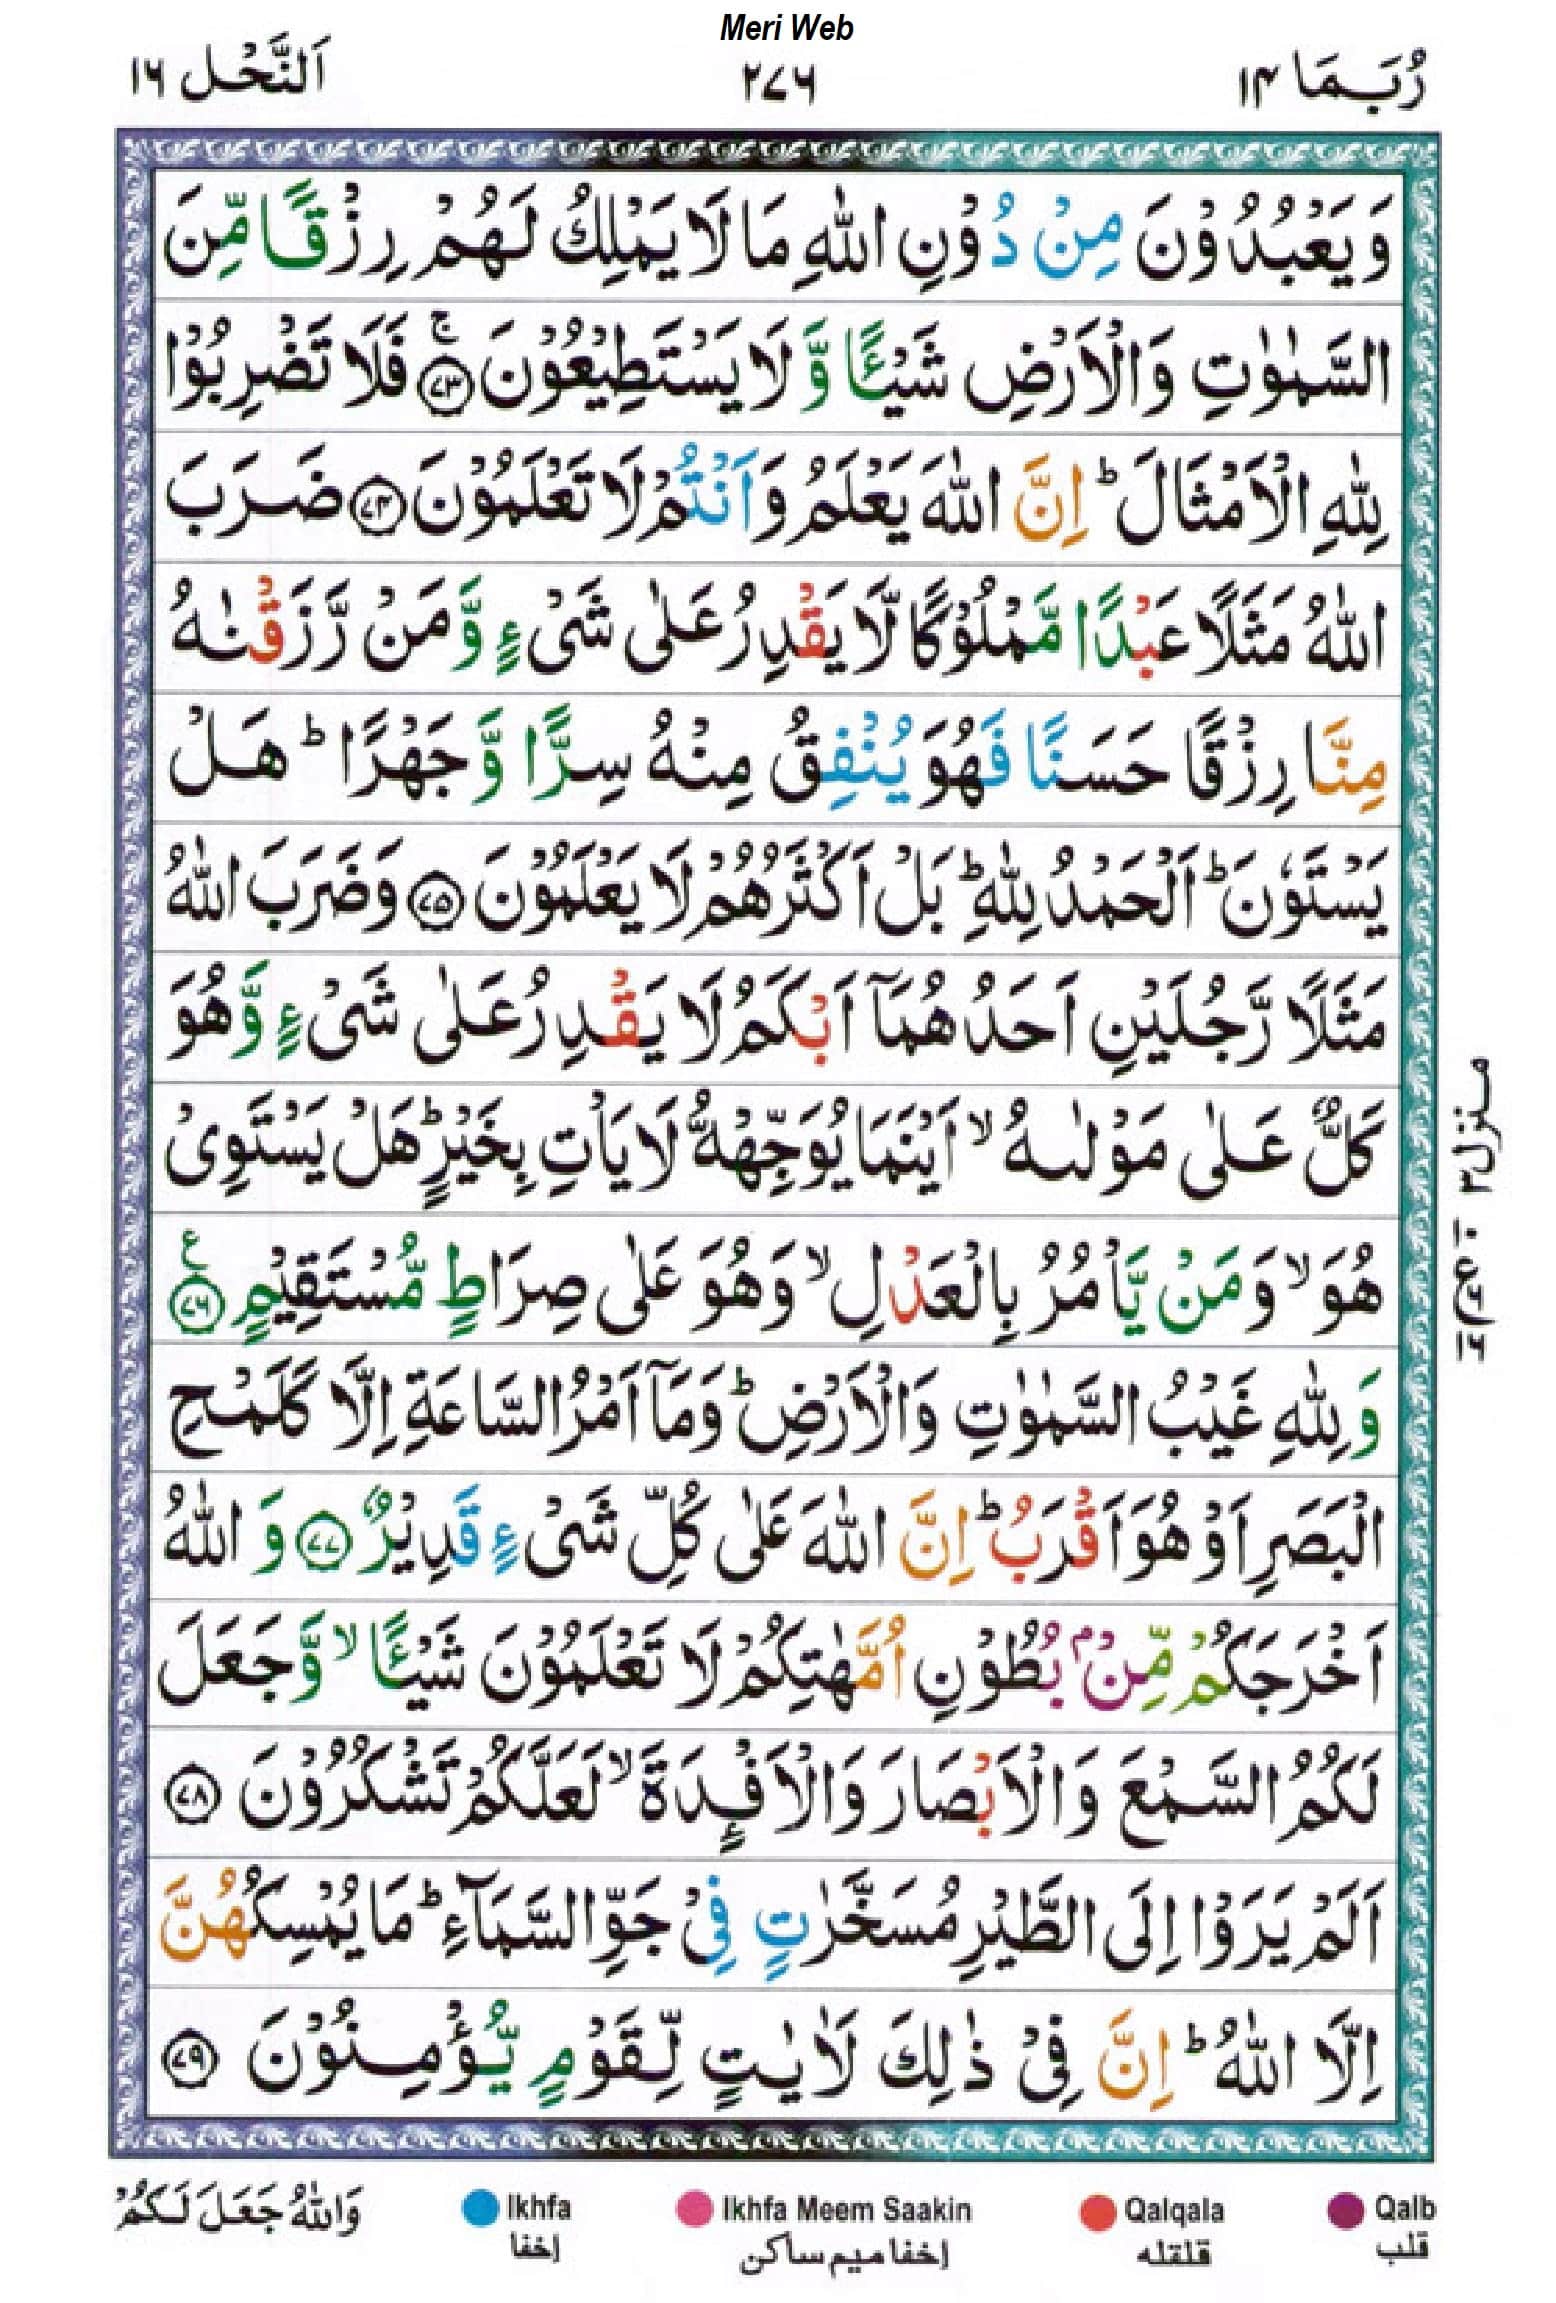 Meri Web
رُبَمَا ١٤ ٢٧٦ اَلنَّحْل ١٦
وَيَعْبُدُوْنَ مِنْ دُوْنِ اللّٰهِ مَا لَا يَمْلِكُ لَهُمْ رِزْقًا مِّنَ
السَّمٰوٰتِ وَالْاَرْضِ شَيْـًٔا وَّ لَا يَسْتَطِيْعُوْنَ ۚ ﴿٧٣﴾ فَلَا تَضْرِبُوْا
لِلّٰهِ الْاَمْثَالَ ؕ اِنَّ اللّٰهَ يَعْلَمُ وَاَنْتُمْ لَا تَعْلَمُوْنَ ﴿٧٤﴾ ضَرَبَ
اللّٰهُ مَثَلًا عَبْدًا مَّمْلُوْكًا لَّا يَقْدِرُ عَلٰى شَىْءٍ وَّمَنْ رَّزَقْنٰهُ
مِنَّا رِزْقًا حَسَنًا فَهُوَ يُنْفِقُ مِنْهُ سِرًّا وَّ جَهْرًا ؕ هَلْ
يَسْتَوٗنَ ؕ اَلْحَمْدُ لِلّٰهِ ؕ بَلْ اَكْثَرُهُمْ لَا يَعْلَمُوْنَ ﴿٧٥﴾ وَضَرَبَ اللّٰهُ
مَثَلًا رَّجُلَيْنِ اَحَدُهُمَاۤ اَبْكَمُ لَا يَقْدِرُ عَلٰى شَىْءٍ وَّهُوَ
كَلٌّ عَلٰى مَوْلٰىهُ ۙ اَيْنَمَا يُوَجِّهْهُّ لَا يَاْتِ بِخَيْرٍ ؕ هَلْ يَسْتَوِىْ
هُوَ ۙ وَمَنْ يَّاْمُرُ بِالْعَدْلِ ۙ وَهُوَ عَلٰى صِرَاطٍ مُّسْتَقِيْمٍ ﴿٧٦﴾ ع
وَ لِلّٰهِ غَيْبُ السَّمٰوٰتِ وَالْاَرْضِ ؕ وَمَاۤ اَمْرُ السَّاعَةِ اِلَّا كَلَمْحِ
الْبَصَرِ اَوْ هُوَ اَقْرَبُ ؕ اِنَّ اللّٰهَ عَلٰى كُلِّ شَىْءٍ قَدِيْرٌ ﴿٧٧﴾ وَ اللّٰهُ
اَخْرَجَكُمْ مِّنْۢ بُطُوْنِ اُمَّهٰتِكُمْ لَا تَعْلَمُوْنَ شَيْـًٔا ۙ وَّجَعَلَ
لَكُمُ السَّمْعَ وَالْاَبْصَارَ وَالْاَفْـِٕدَةَ ۙ لَعَلَّكُمْ تَشْكُرُوْنَ ﴿٧٨﴾
اَلَمْ يَرَوْا اِلَى الطَّيْرِ مُسَخَّرٰتٍ فِىْ جَوِّ السَّمَآءِ ؕ مَا يُمْسِكُهُنَّ
اِلَّا اللّٰهُ ؕ اِنَّ فِىْ ذٰلِكَ لَاٰيٰتٍ لِّقَوْمٍ يُّؤْمِنُوْنَ ﴿٧٩﴾
منزل ٣
وَاللّٰهُ جَعَلَ لَكُمْ
Ikhfa Ikhfa Meem Saakin Qalqala Qalb
إخفا إخفا ميم ساكن قلقله قلب